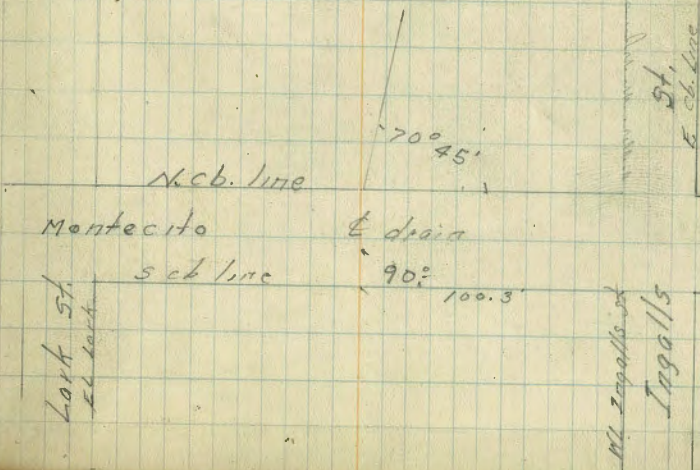 70° 45'
N. cb. line
Montecito
℄ drain
S cb line
90°
100.3'
Lark St.
EL Lark
WL Ingalls St
Ingalls
St.
E cb. line